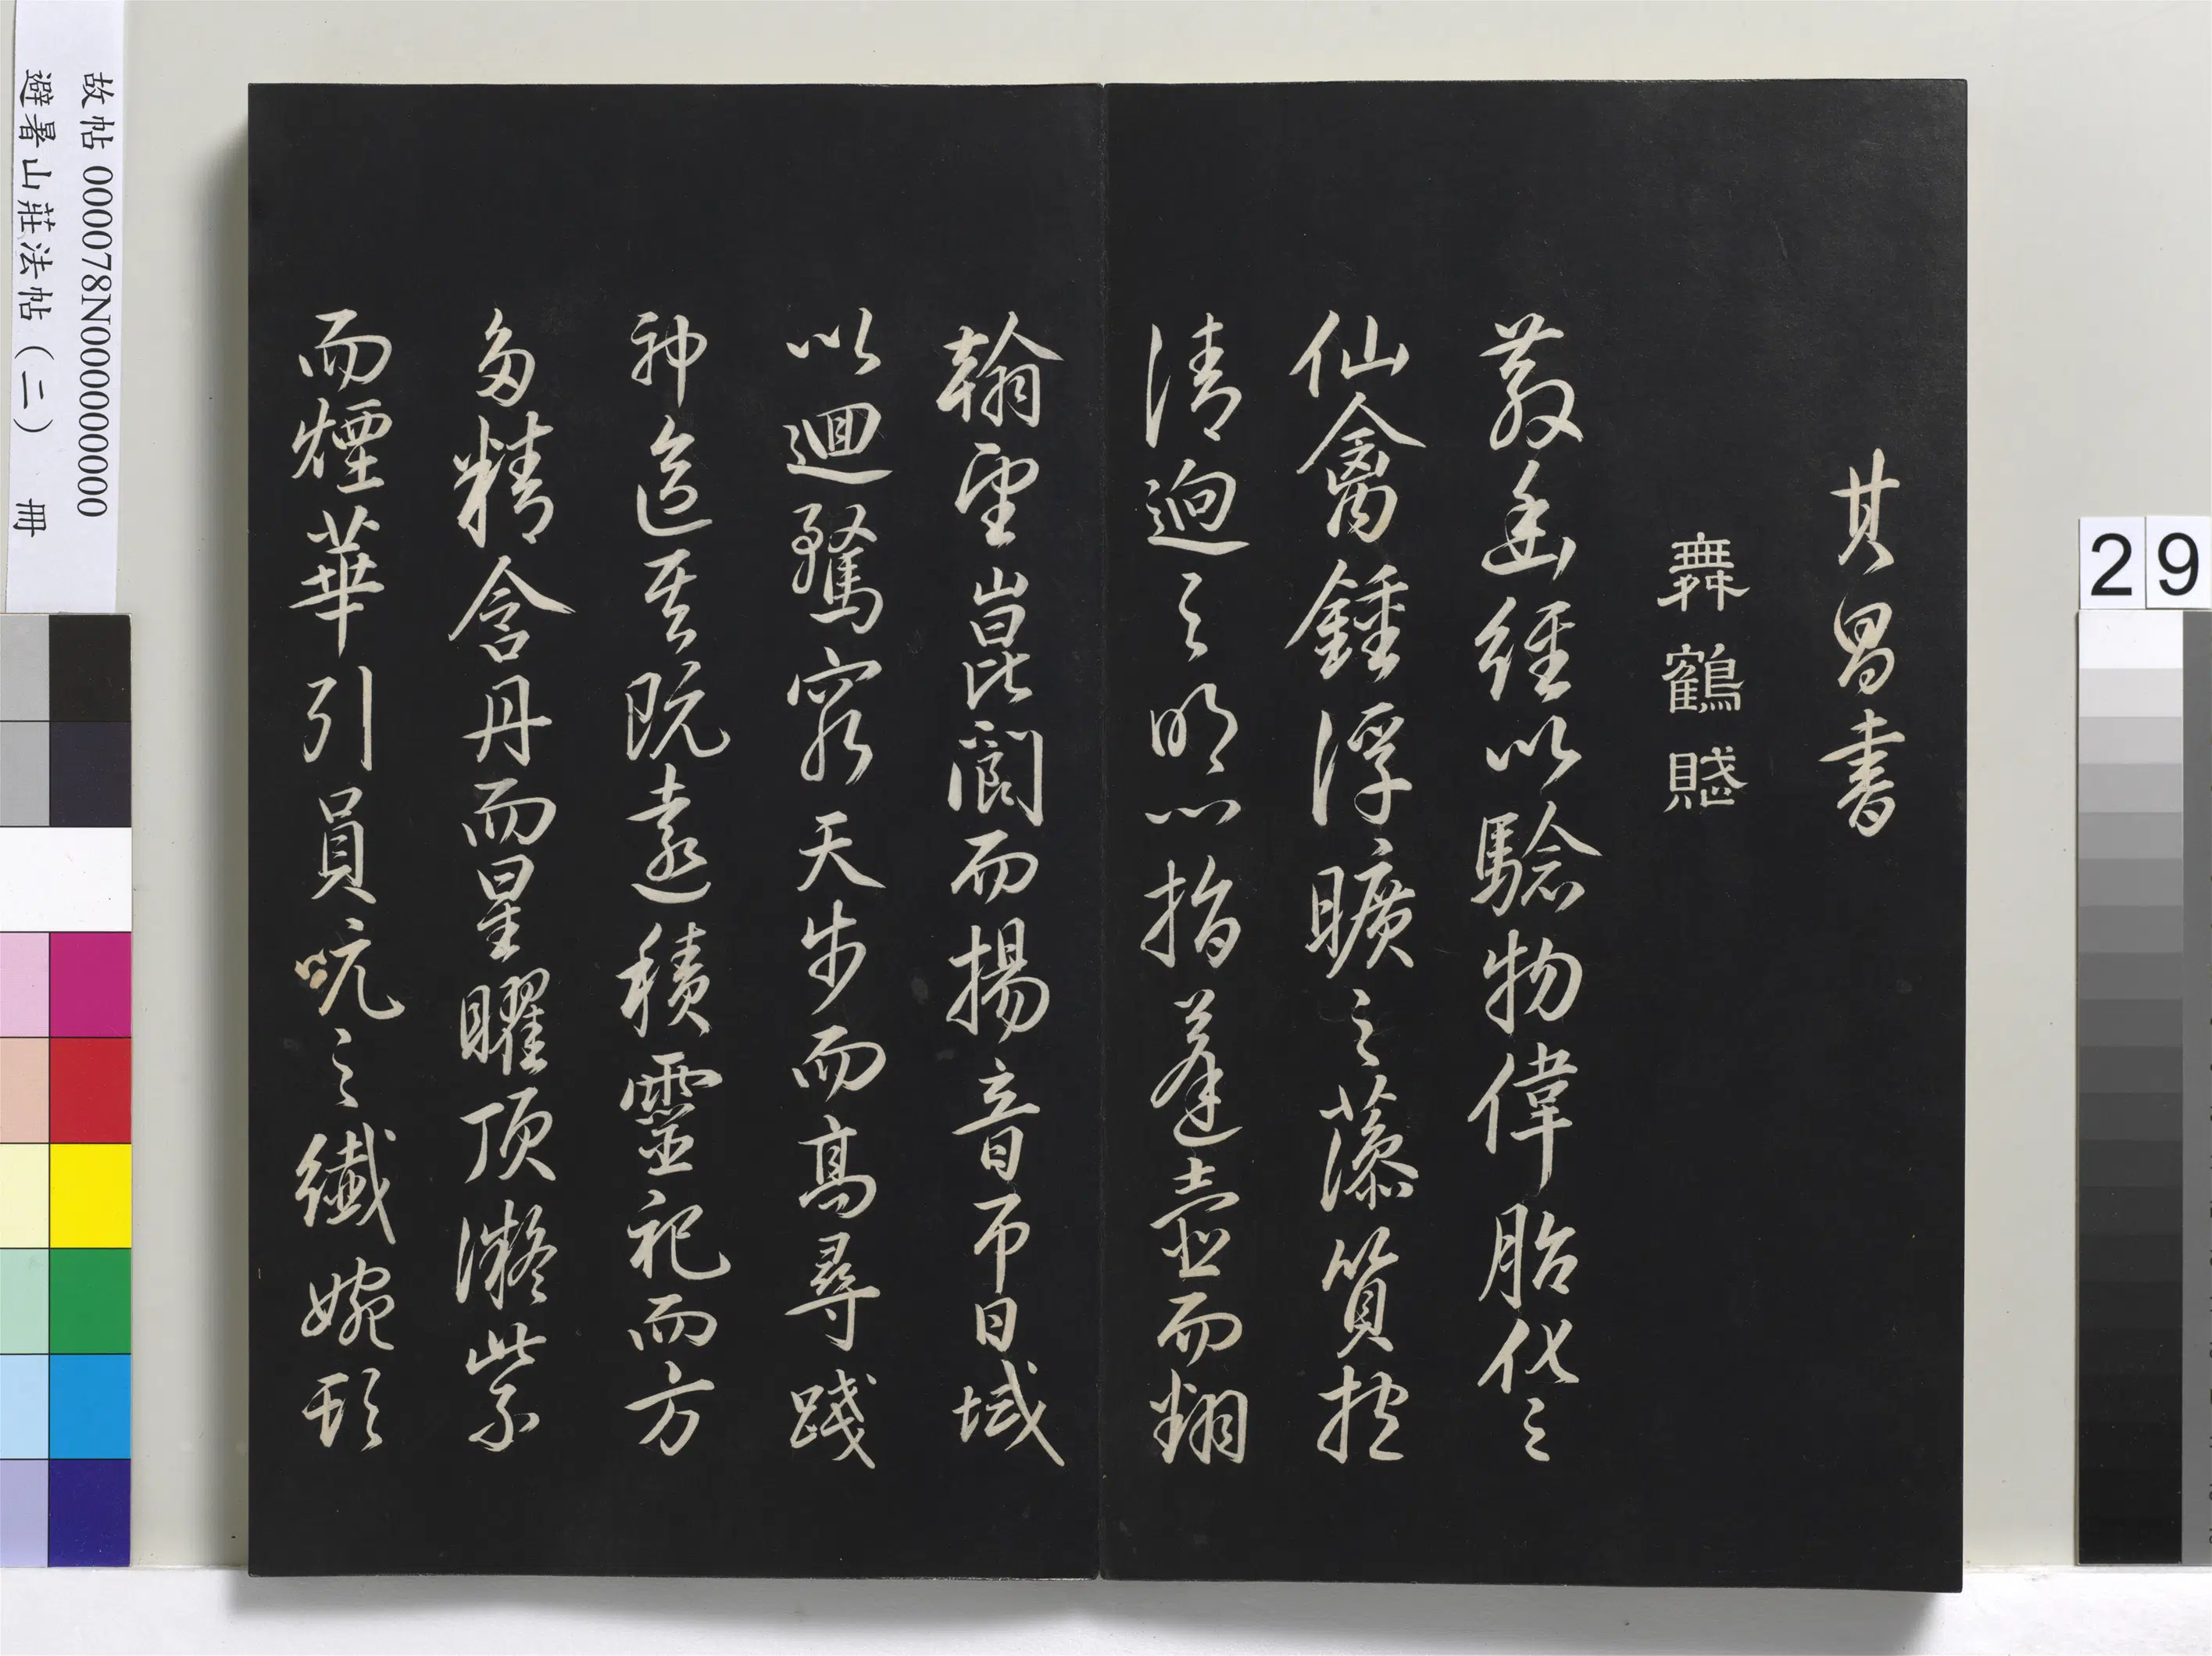 其昌書
舞鶴賦
散幽經以驗物偉胎化之
仙禽鍾浮曠之藻質抱
清迥之明心指蓬壺而翻
翰望崑閬而揚音帀日域
以迴騖窮天步而高尋踐
神區其既遠積靈祀而方
多精含丹而星曜頂凝紫
而煙華引員吭之纖婉頓
故帖 000078N000000000
避暑山莊法帖（二） 冊
29